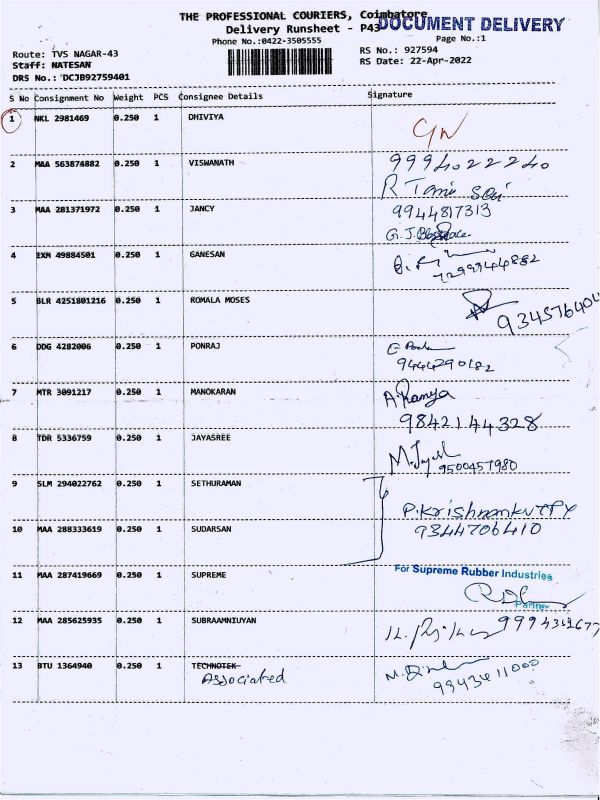 THE PROFESSIONAL COURIERS, Coimbatore
DOCUMENT DELIVERY
Delivery Runsheet - P43
Phone No:0422-3505555
Page No.:1
Route: TVS NAGAR-43
RS No.: 927594
Staff: NATESAN
RS Date: 22-Apr-2022
DRS No.: DCJB92759401
S No Consignment No Weight PCS Consignee Details Signature
1 NKL 2981469 0.250 1 DHIVIYA
2 MAA 563874882 0.250 1 VISWANATH 9994022240
R
3 MAA 281371972 0.250 1 JANCY 9944817313
G.J.
4 IXM 49884501 0.250 1 GANESAN
7299944882
5 BLR 4251801216 0.250 1 ROMALA MOSES
934576404
6 DDG 4282006 0.250 1 PONRAJ
9444290182
7 MTR 3091217 0.250 1 MANOKARAN A.Ramya
9842144328
8 TDR 5336759 0.250 1 JAYASREE
9500457980
9 SLM 294022762 0.250 1 SETHURAMAN
P.Krishnankutty
10 MAA 288333619 0.250 1 SUDARSAN 9344706410
11 MAA 287419669 0.250 1 SUPREME For Supreme Rubber Industries
Partner
12 MAA 285625935 0.250 1 SUBRAAMNIUYAN
13 BTU 1364940 0.250 1 TECHNOTEK
Associated
9943411000